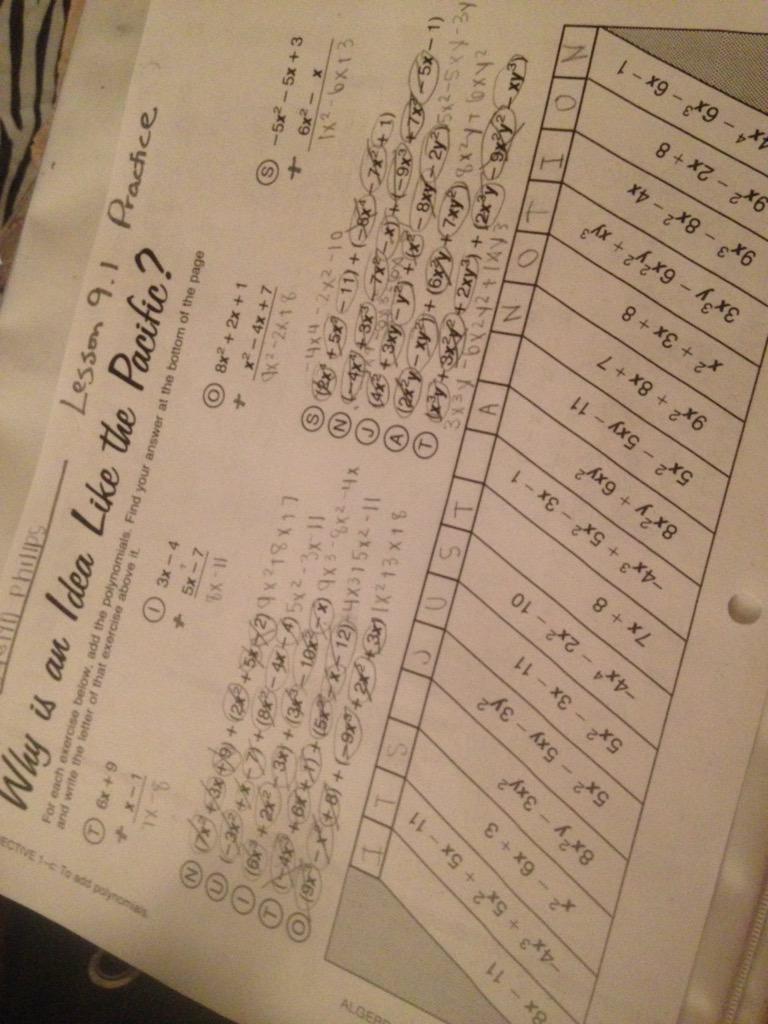 Phillips
Lesson 9.1 Practice
ECTIVE 1–c: To add polynomials.
Why is an Idea Like the Pacific?
For each exercise below, add the polynomials. Find your answer at the bottom of the page
and write the letter of that exercise above it.
T 6x + 9
+ x − 1
7x − 8
I 3x − 4
+ 5x − 7
8x − 11
O 8x² + 2x + 1
+ x² − 4x + 7
9x² − 2x + 8
S −5x² − 5x + 3
+ 6x² − x
1x² − 6x + 3
N (7x² + 3x + 9) + (2x² + 5x − 2) 9x² + 8x + 7
U (−3x² + x − 7) + (8x² − 4x − 4) 5x² − 3x − 11
I (6x³ + 2x² − 3x) + (3x³ − 10x² − x) 9x³ − 8x² − 4x
T (−4x³ + 6x + 1) + (5x² − x − 12) 4x³ + 5x² − 11
O (9x³ − x² + 8) + (−9x³ + 2x² + 3x) 1x² + 3x + 8
−4x4 − 2x2 − 10
S + 5x² − 11) + (−8x⁴ − 7x² + 1)
N (−4x⁴ + 3x³ − 7x² − x) + (−9x³ + 7x² − 5x − 1)
J (4x² + 3xy − y²) + (x² − 8xy − 2y²) 5x2 − 5xy − 3y
A (2x²y − xy²) + (6x²y + 7xy²) 8x2y + 6xy2
T (x³y + 3x²y² + 2xy³) + (2x³y − 9x²y² − xy³)
3x3y − 6x2y2 + 1xy3
I T S J U S T A N O T I O N
8x − 11
−4x³ + 5x² + 5x − 11
x² − 6x + 3
8x²y − 3xy²
5x² − 5xy − 3y²
5x² − 3x − 11
−4x⁴ − 2x² − 10
7x + 8
−4x³ + 5x² − 3x − 1
8x²y + 6xy²
5x² − 5xy − 11
9x² + 8x + 7
x² + 3x + 8
3x³y − 6x²y² + xy³
9x³ − 8x² − 4x
9x² − 2x + 8
4x⁴ − 6x³ − 6x − 1